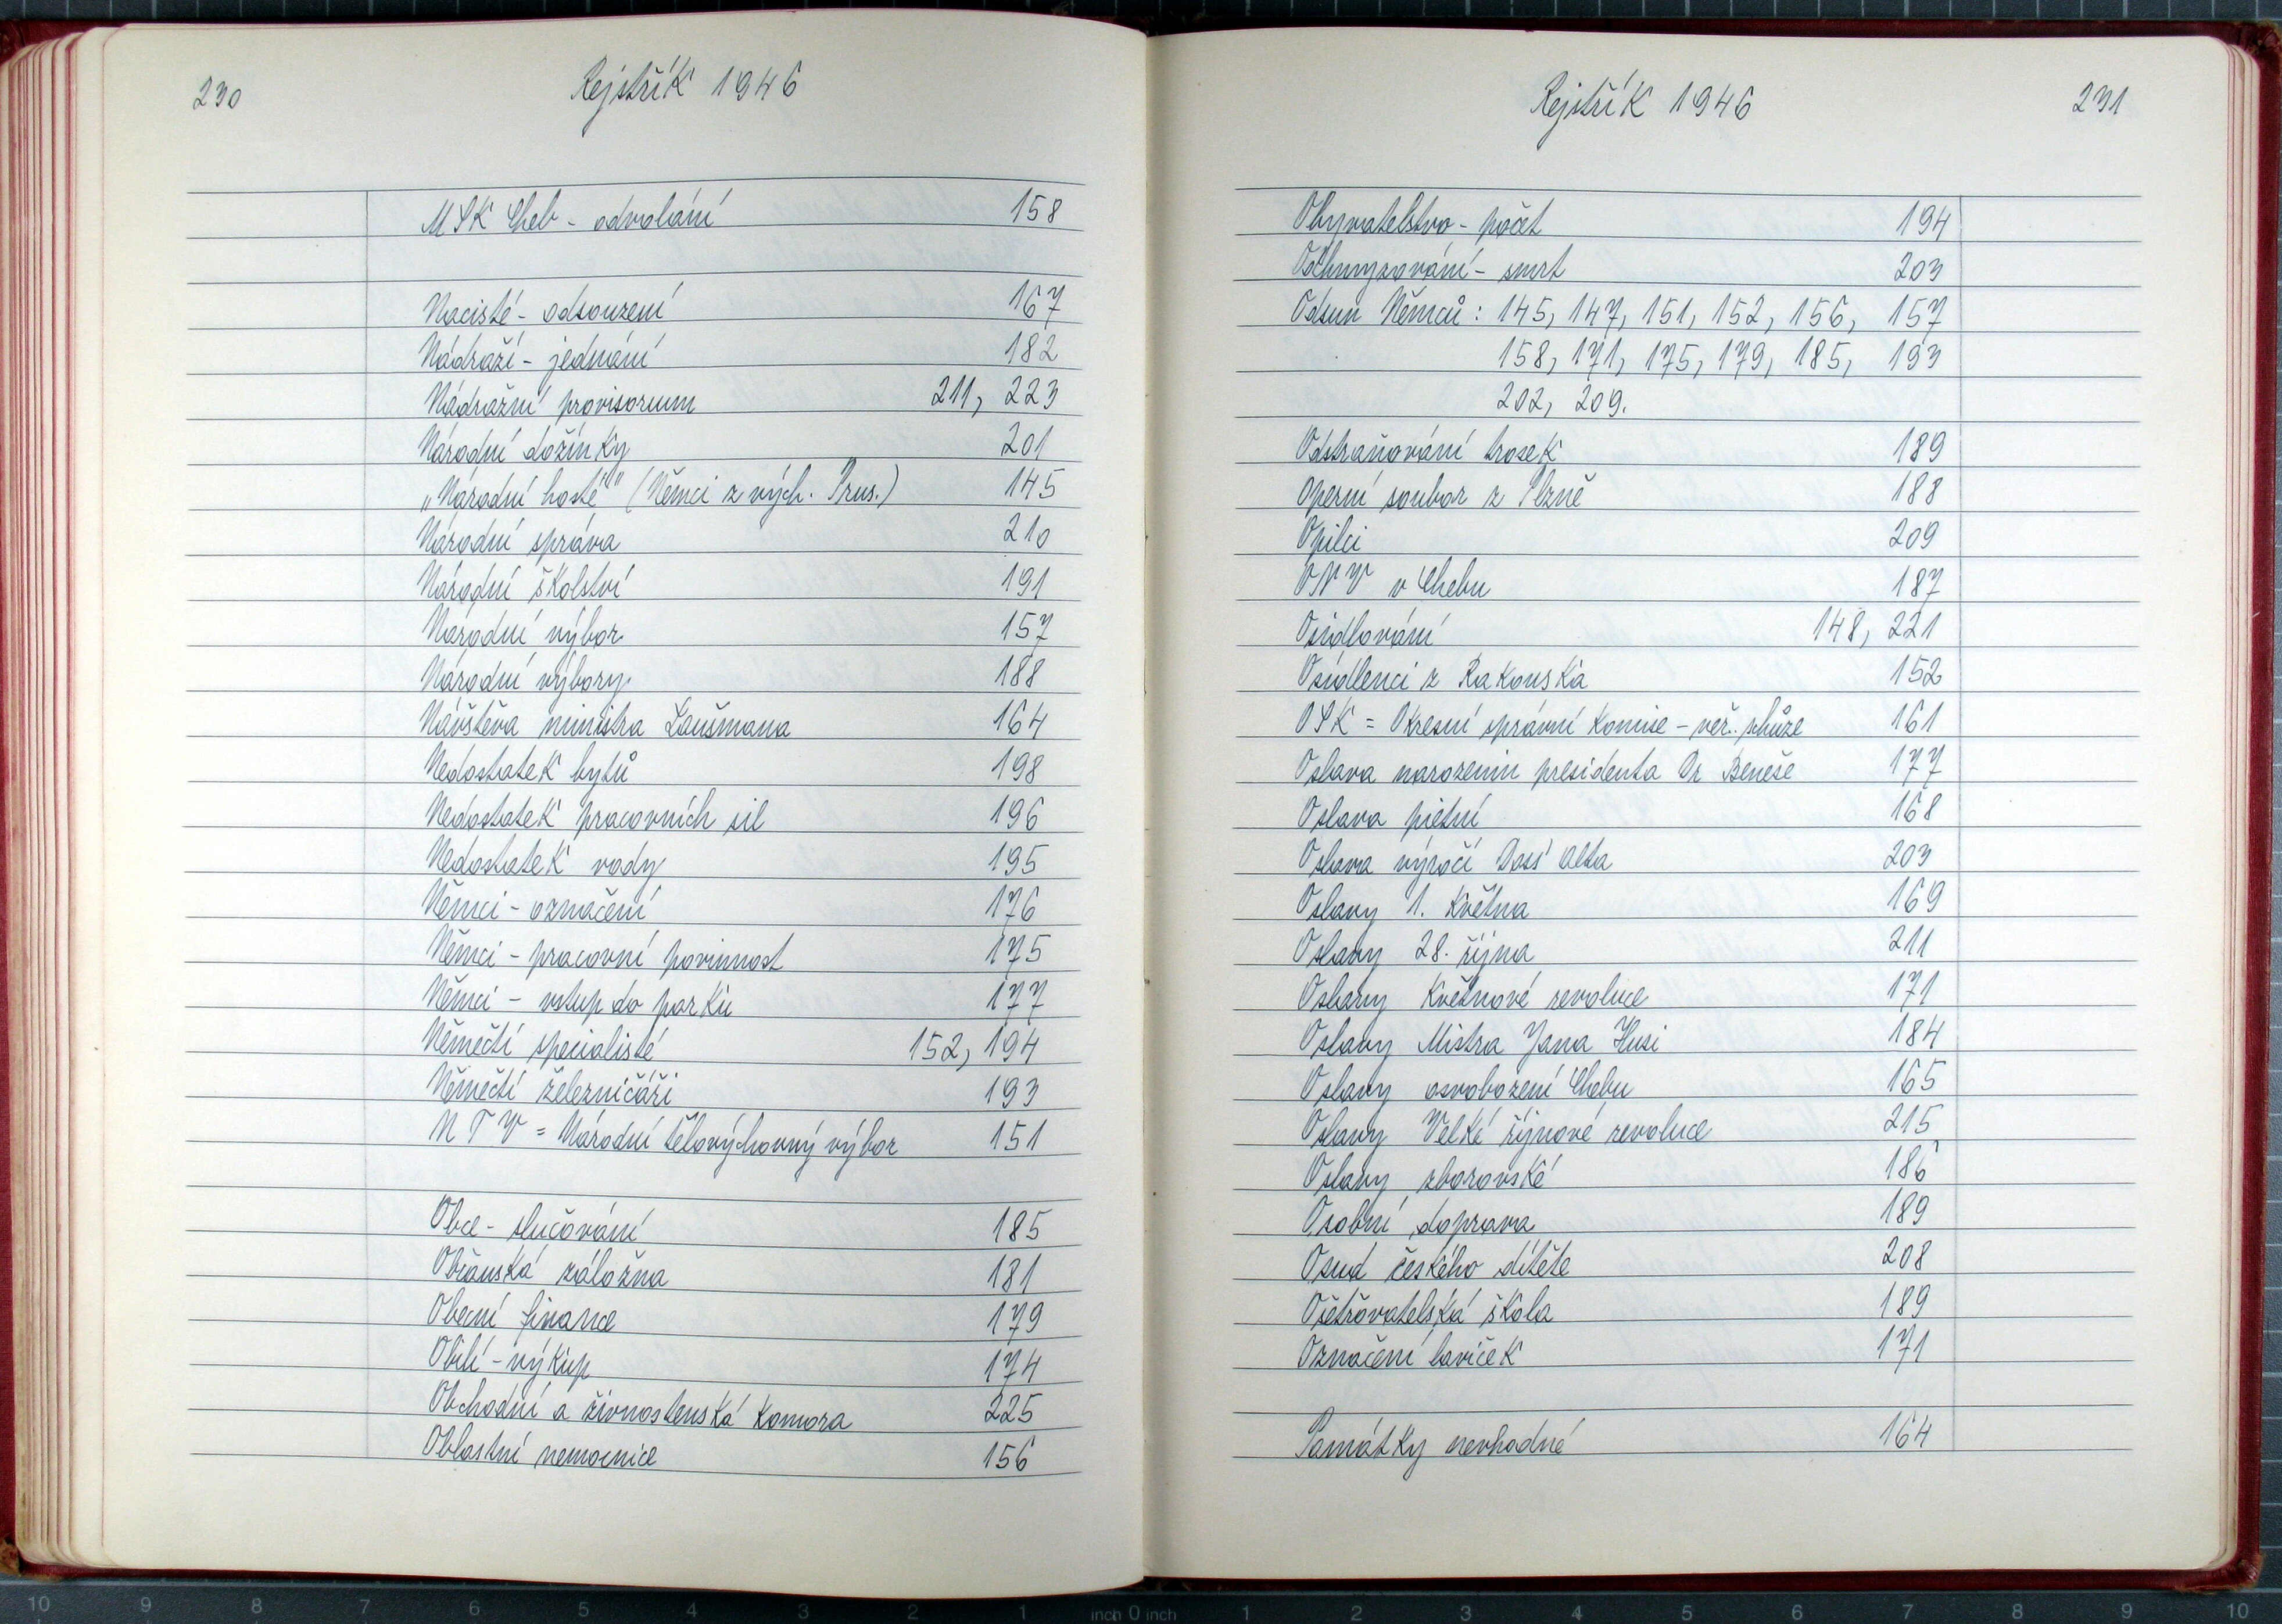 230
Rejstřík 1946
MSK Cheb - odvolání 158
Nacisté - odsouzení 167
Nádraží - jednání 182
Nádražní provisorium 211, 223
Národní dožínky 201
„Národní hosté" (Němci z vých. Prus.) 145
Národní správa 210
Národní školství 191
Národní výbor 157
Národní výbory 188
Návštěva ministra Laušmana 164
Nedostatek bytů 198
Nedostatek pracovních sil 196
Nedostatek vody 195
Němci - označení 176
Němci - pracovní povinnost 175
Němci - vstup do parků 177
Němečtí specialisté 152, 194
Němečtí železničáři 193
N T V = Národní tělovýchovný výbor 151
Obce - slučování 185
Občanská záložna 181
Obecní finance 179
Obilí - výkup 174
Obchodní a živnostenská komora 225
Oblastní nemocnice 156
Rejstřík 1946
231
Obyvatelstvo - počet 194
Odhmyzování - smrt 203
Odsun Němců : 145, 147, 151, 152, 156, 157
158, 171, 175, 179, 185, 193
202, 209.
Odstraňování trosek 189
Operní soubor z Plzně 188
Opilci 209
ONV v Chebu 187
Osidlování 148, 221
Osídlenci z Rakouska 152
OSK = Okresní správní komise - veř. schůze 161
Oslava narozenin presidenta Dr Beneše 177
Oslava pietní 168
Oslava výročí Doss Alta 203
Oslavy 1. května 169
Oslavy 28. října 211
Oslavy květnové revoluce 171
Oslavy Mistra Jana Husi 184
Oslavy osvobození Chebu 165
Oslavy Velké říjnové revoluce 215
Oslavy zborovské 186
Osobní doprava 189
Osud českého dítěte 208
Ošetřovatelská škola 189
Označení laviček 171
Památky nevhodné 164
10 9 8 7 6 5 4 3 2 1 inch 0 inch 1 2 3 4 5 6 7 8 9 10